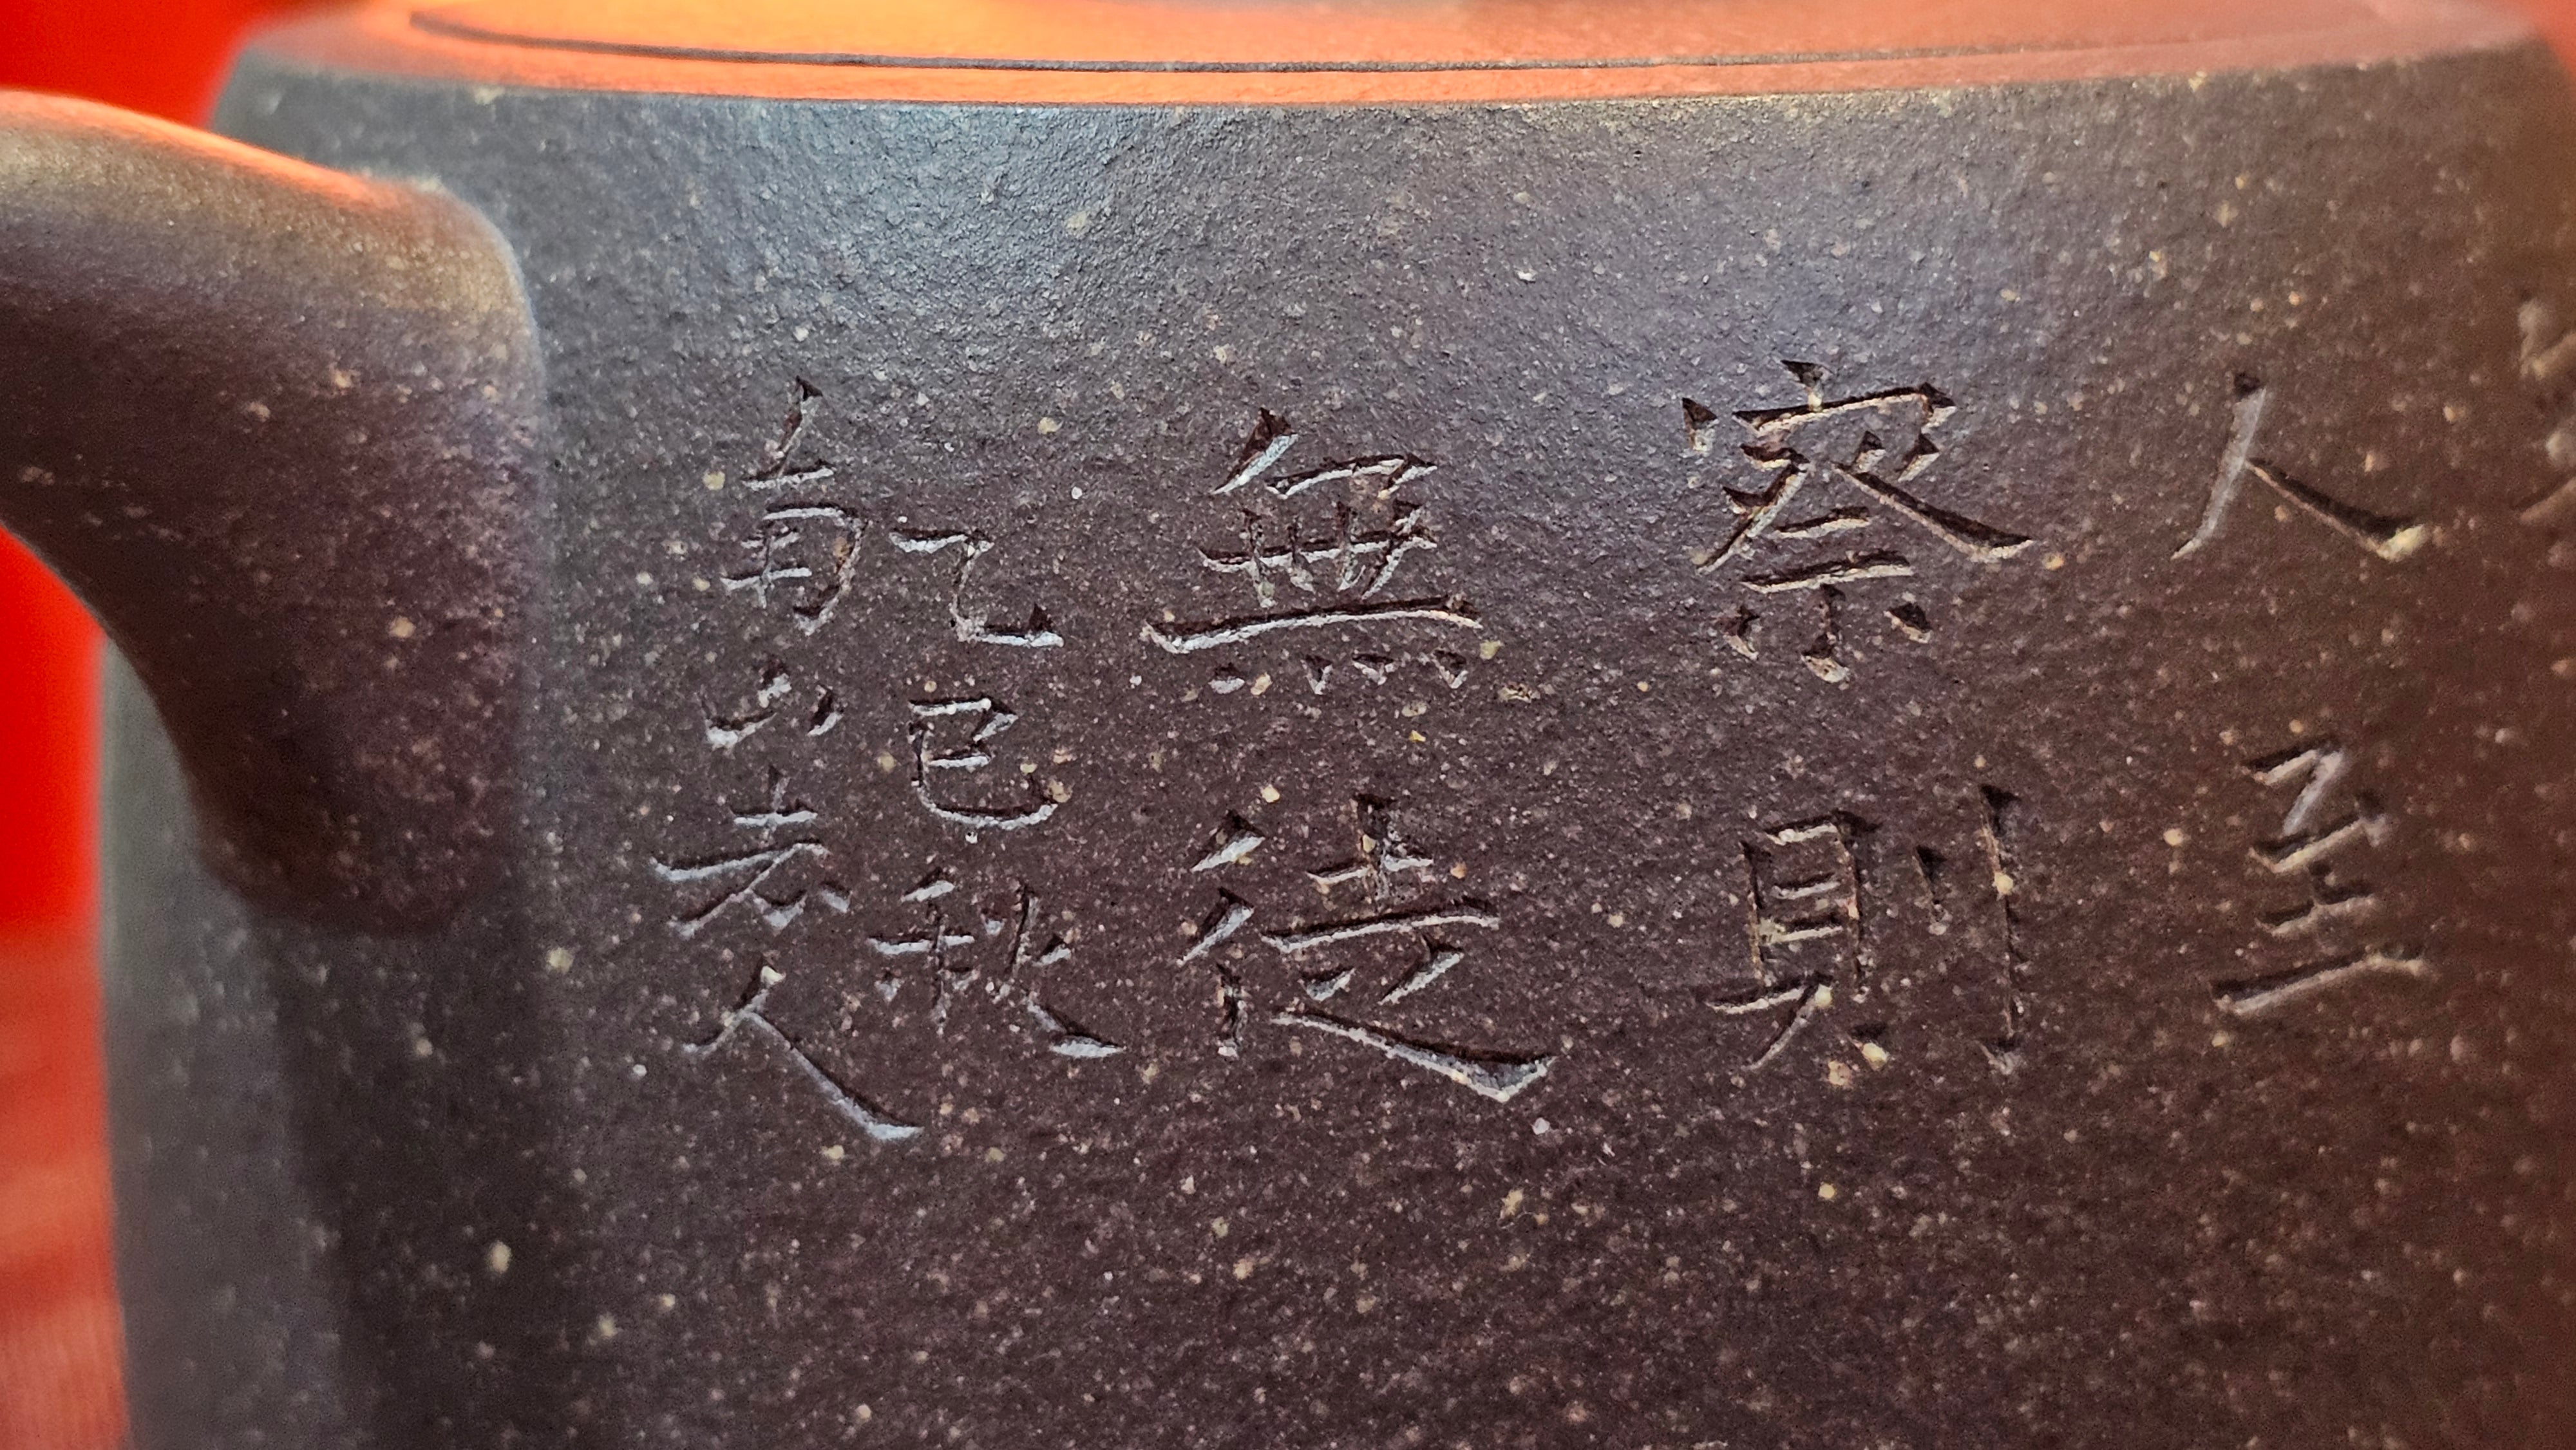 人至
察則
無徒
乙巳秋
南山老人